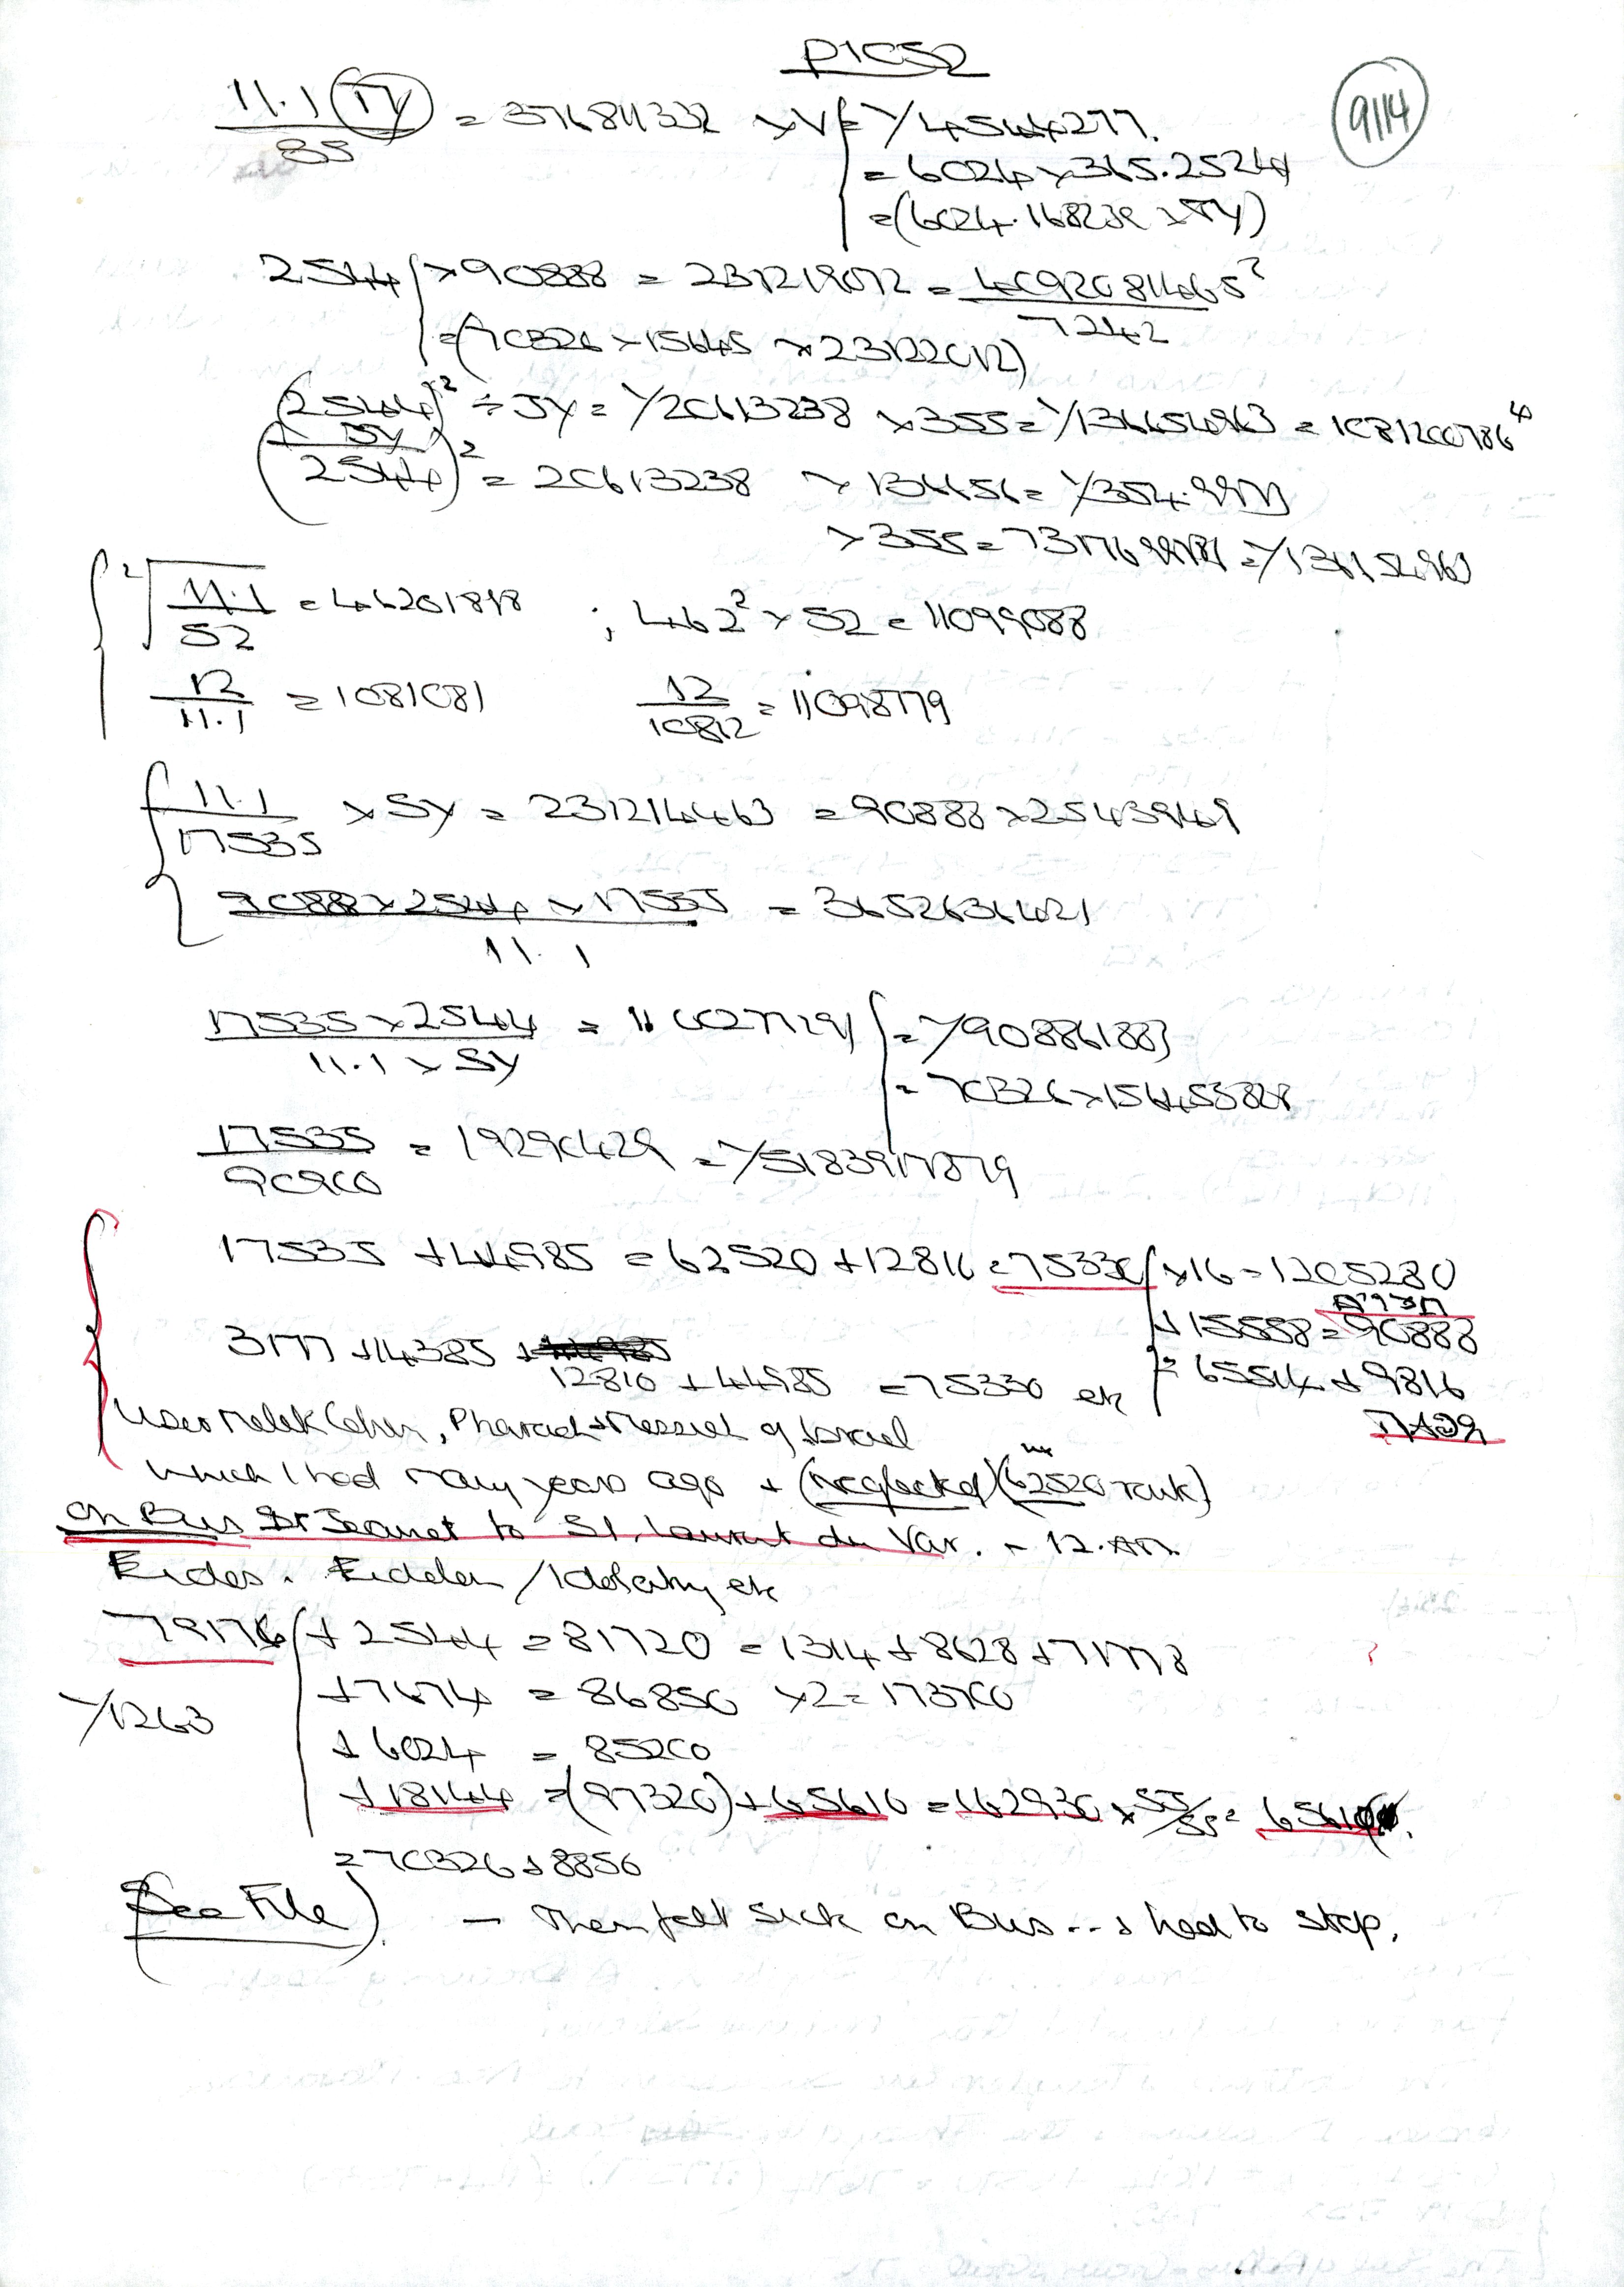 P1052
9114
11.1 (TY) / 85 = 37681332 × V = Y4544277.
= 6024 × 365.2524
= (6024.168232 × SY)
2544 × 90888 = 231219072 = 4092081465² / 7242
= (70326 × 15645 × 23122012)
(2544)² ÷ SY = Y20613238 × 355 = Y136654963 = 1081200786⁴
(SY / 2544)² = 20613238 × 136656 = Y354.99
× 355 = = Y136154963
²√11.1 / 52 = 46201848 ; 462² × 52 = 11099088
12 / 11.1 = 1081081 12 / 10812 = 11098779
11.1 / 17535 × SY = 231214463 = 90888 × 2543949
90888 × 2544 × 17535 / 11.1 = 3652636421
17535 × 2544 / 11.1 × SY = = Y908861883
= 70326 × 156455828
17535 / 90900 = 19290429 = Y5183917879
17535 + 44985 = 62520 + 12810 = 75330 × 16 = 1205280
+ 15558 = 90888
3177 + 14385 + 12810 + 44985 = 75330 etc
= 65514 + 9816
User Melek Cohen, Pharaoh + Messiah of Israel
which I had many years ago + (Neglected) (62520 rank)
On Bus St Jeannet to St. Laurent du Var. - 12. AM.
Eidos. Eidolon / Idolatry etc
79176 + 2544 = 81720 = 1314 + 8628 + 71778
+ 7674 = 86850 × 2 = 173700
Y1263
+ 6024 = 85200
+ 18144 = (97320) + 65610 = 162930 × = 65610.
= 70326 + 8850
(See File). - Then felt sick on Bus... & had to stop.